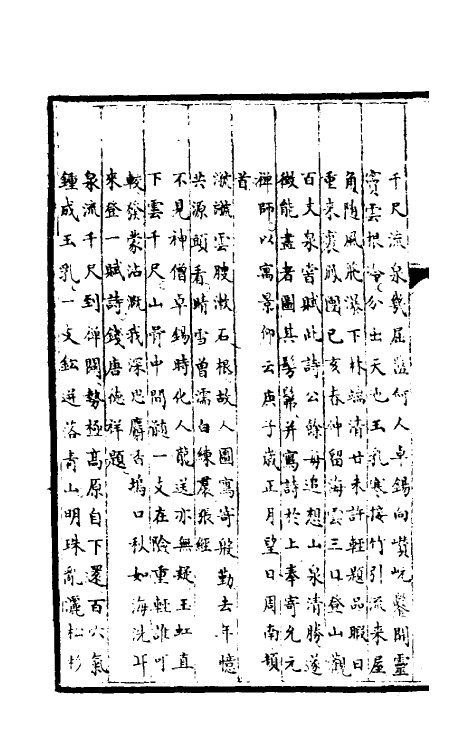 千尺流泉幾屈盤何人卓錫向巑岏鑿開靈
竇雲根冷分出天池玉乳寒接竹引流来屋
角随風飛瀑下林端清甘未許輕題品暇日
重来裏殿團己亥春仲留海雲三日登山觀
百丈泉嘗賦此詩公餘毎追想山泉清勝遂
倣能畫者圖其髣髴并寫詩於上奉寄允元
禅師以寓景仰云庚子歳正月望日周南頓
首
潨㶁雲腰漱石根故人圖寫寄殷勤去年憶
共源頭看晴雪曽濡白練裠張經
不見神僧卓錫時化人能送亦無疑玉虹直
下雲千尺山骨中間髓一支在險重輕誰可
較發蒙沾溉我深思麝香塢口秋如海洗耳
来登一賦詩錢唐徳祥題
泉流千尺到禅關勢極髙原自下還百穴氣
鍾成玉乳一支鉛迸落青山明珠亂灑松杉